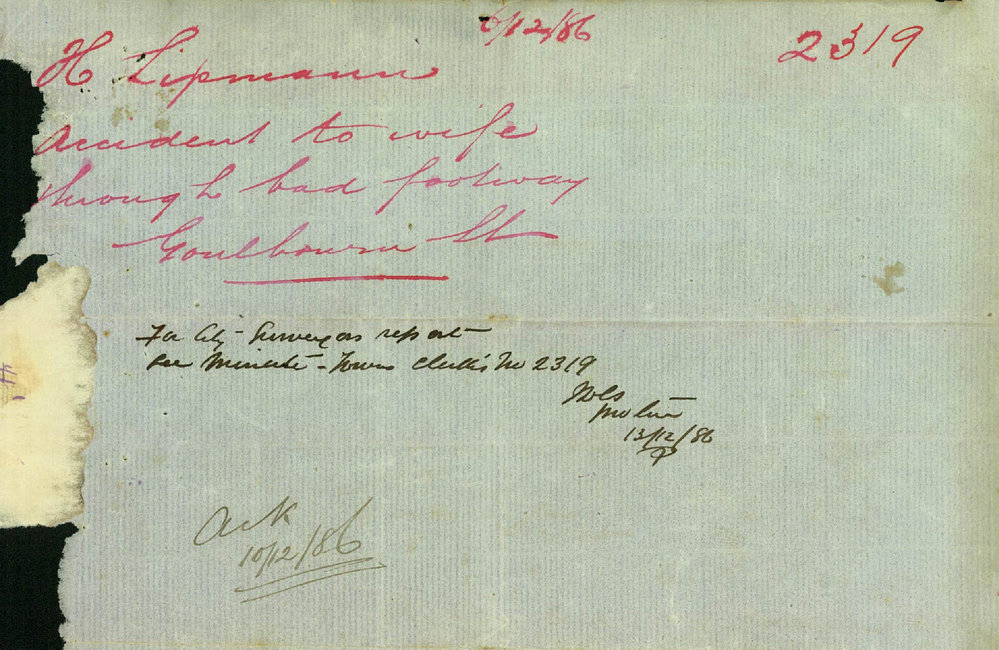 6/12/86
2319
H Lipmann
Accident to wife
through bad footway
Goulbourn St
For City Surveyors report
see Minute - Town Clerk's No 2319
13/12/86
Ack
10/12/86